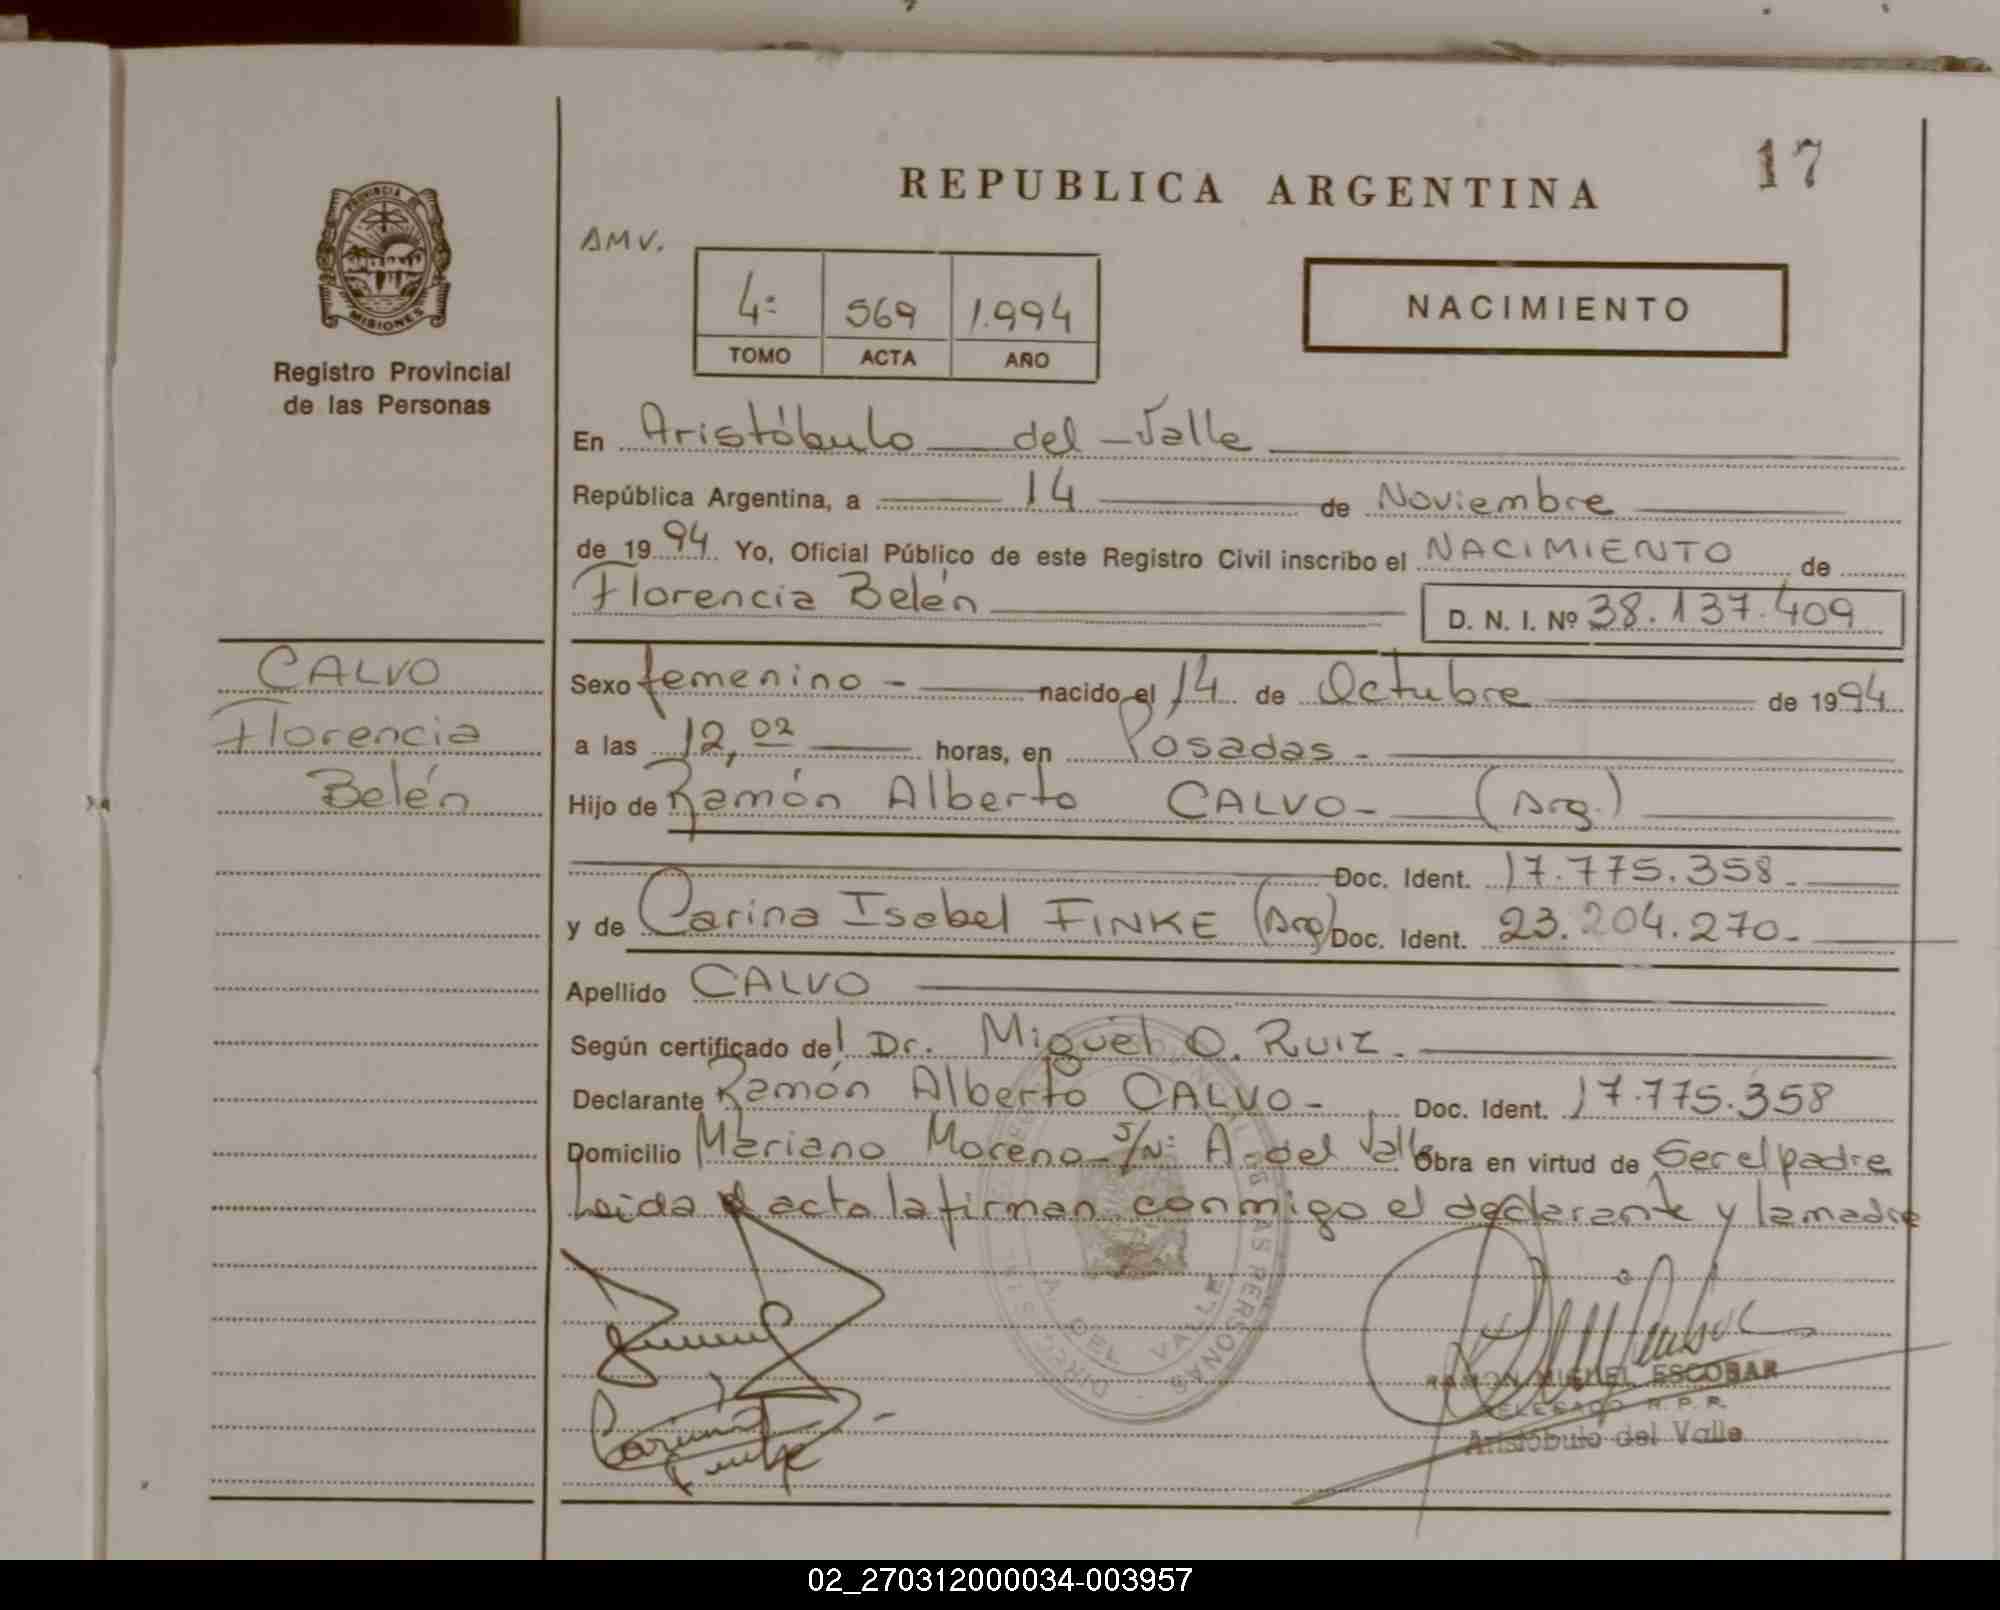 17
REPUBLICA ARGENTINA
PROVINCIA DE
MISIONES
Registro Provincial
de las Personas
AMV.
4º 569 1.994
TOMO ACTA AÑO
NACIMIENTO
En Aristóbulo del Valle
República Argentina, a 14 de Noviembre
de 1994 Yo, Oficial Público de este Registro Civil inscribo el NACIMIENTO de
Florencia Belén
D. N. I. Nº 38.137.409
CALVO
Florencia
Belén
Sexo femenino - nacido el 14 de Octubre de 1994
a las 12,02 horas, en Posadas -
Hijo de Ramón Alberto CALVO - (Arg.)
Doc. Ident. 17.775.358 -
y de Carina Isabel FINKE (Arg) Doc. Ident. 23.204.270 -
Apellido CALVO
Según certificado del Dr. Miguel O. RUIZ.
Declarante Ramón Alberto CALVO - Doc. Ident. 17.775.358
Domicilio Mariano Moreno S/Nº A. del Valle Obra en virtud de Ser el padre
Leida el acta la firman conmigo el declarante y la madre
A. DEL VALLE
Carina Finke
RAMON MIGUEL ESCOBAR
DELEGADO R. P. P.
Aristóbulo del Valle
02_270312000034-003957